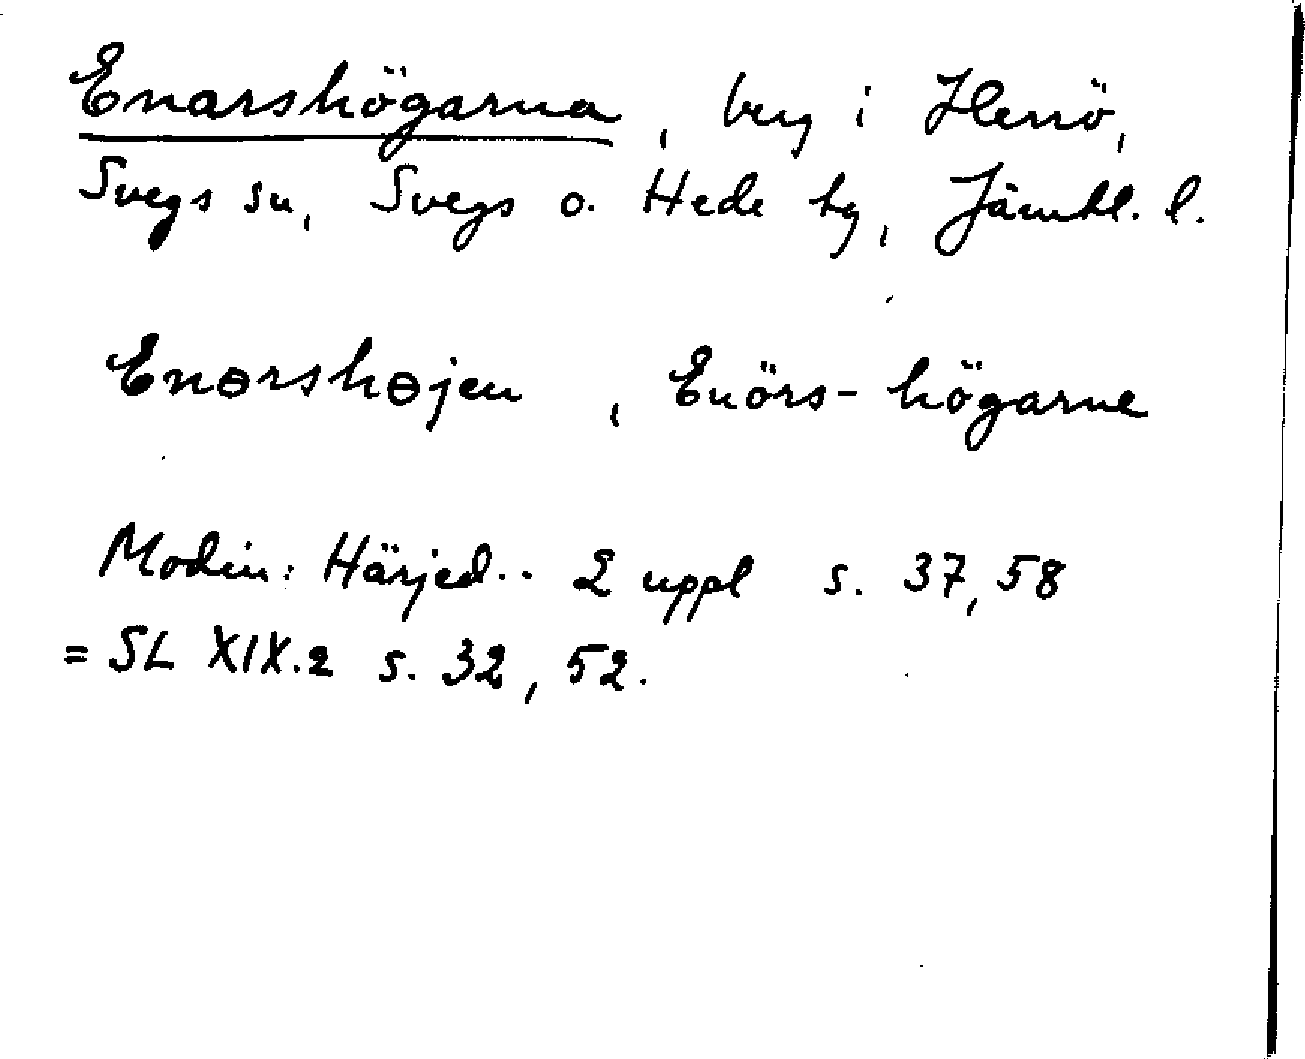 Enarshögarna, berg i Herrö,
Svegs sn, Svegs o. Hede tg, Jämtl. l.
Enɵrshɵjen, Enörs-högarne
Modin: Härjed.. 2 uppl s. 37, 58
= SL XIX.2 s. 32, 52.